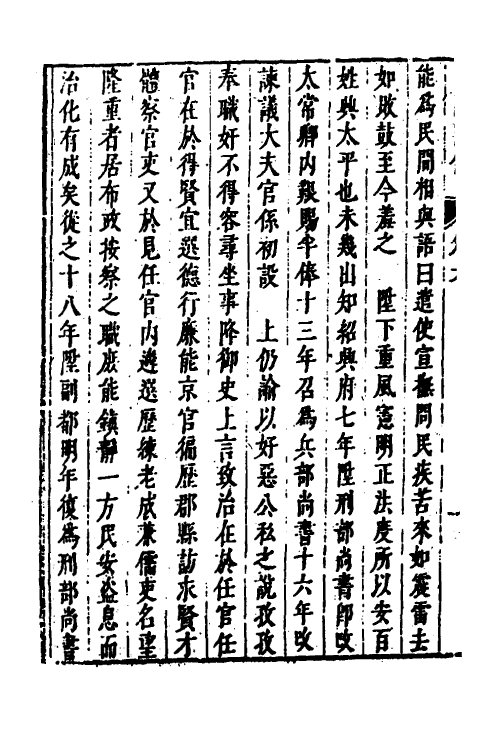 能爲民間相與語曰遣使宣撫問民疾苦來如震雷去
如敗鼓至今羞之　陛下重風憲明正法度所以安百
姓興太平也未幾出知紹興府七年陞刑部尚書即改
太常卿内艱賜半俸十三年召爲兵部尚書十六年改
諫議大夫官係初設　上仍諭以好惡公私之說孜孜
奉職奸不得容尋坐事降御史上言致治在於任官任
官在於得賢宜選德行廉能京官徧歷郡縣訪求賢才
體察官吏又於見任官内選歷練老成兼儒吏名望
隆重者居布政按察之職庶能鎮靜一方民安盗息而
治化有成矣從之十八年陞副都明年復爲刑部尚書